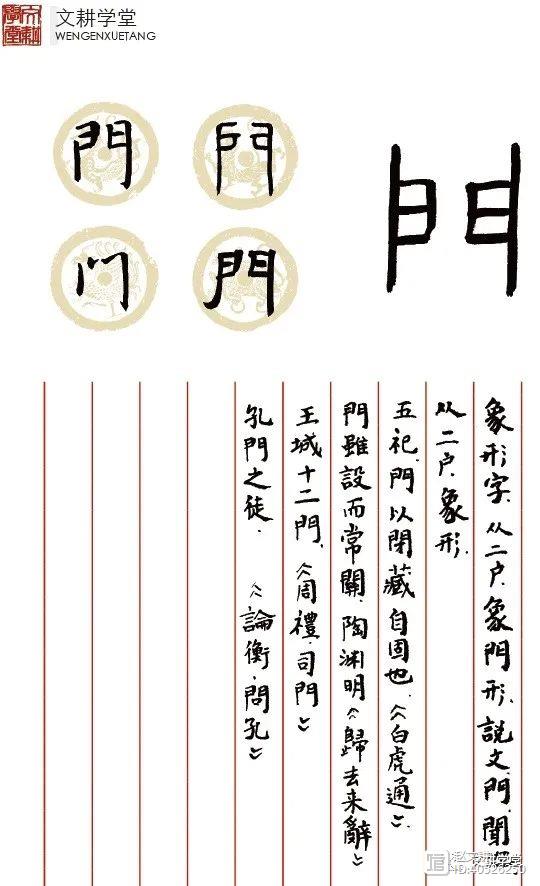 文耕学堂
WENGENXUETANG
門 門
门 門
門
象形字、从二户、象門形、説文、門、聞
从二户、象形、
五祀、門以閉藏自固也、《白虎通》、
門雖設而常關、陶渊明《歸去来辭》
王城十二門、《周禮、司門》
孔門之徒、《論衡、問孔》
ID:40928250